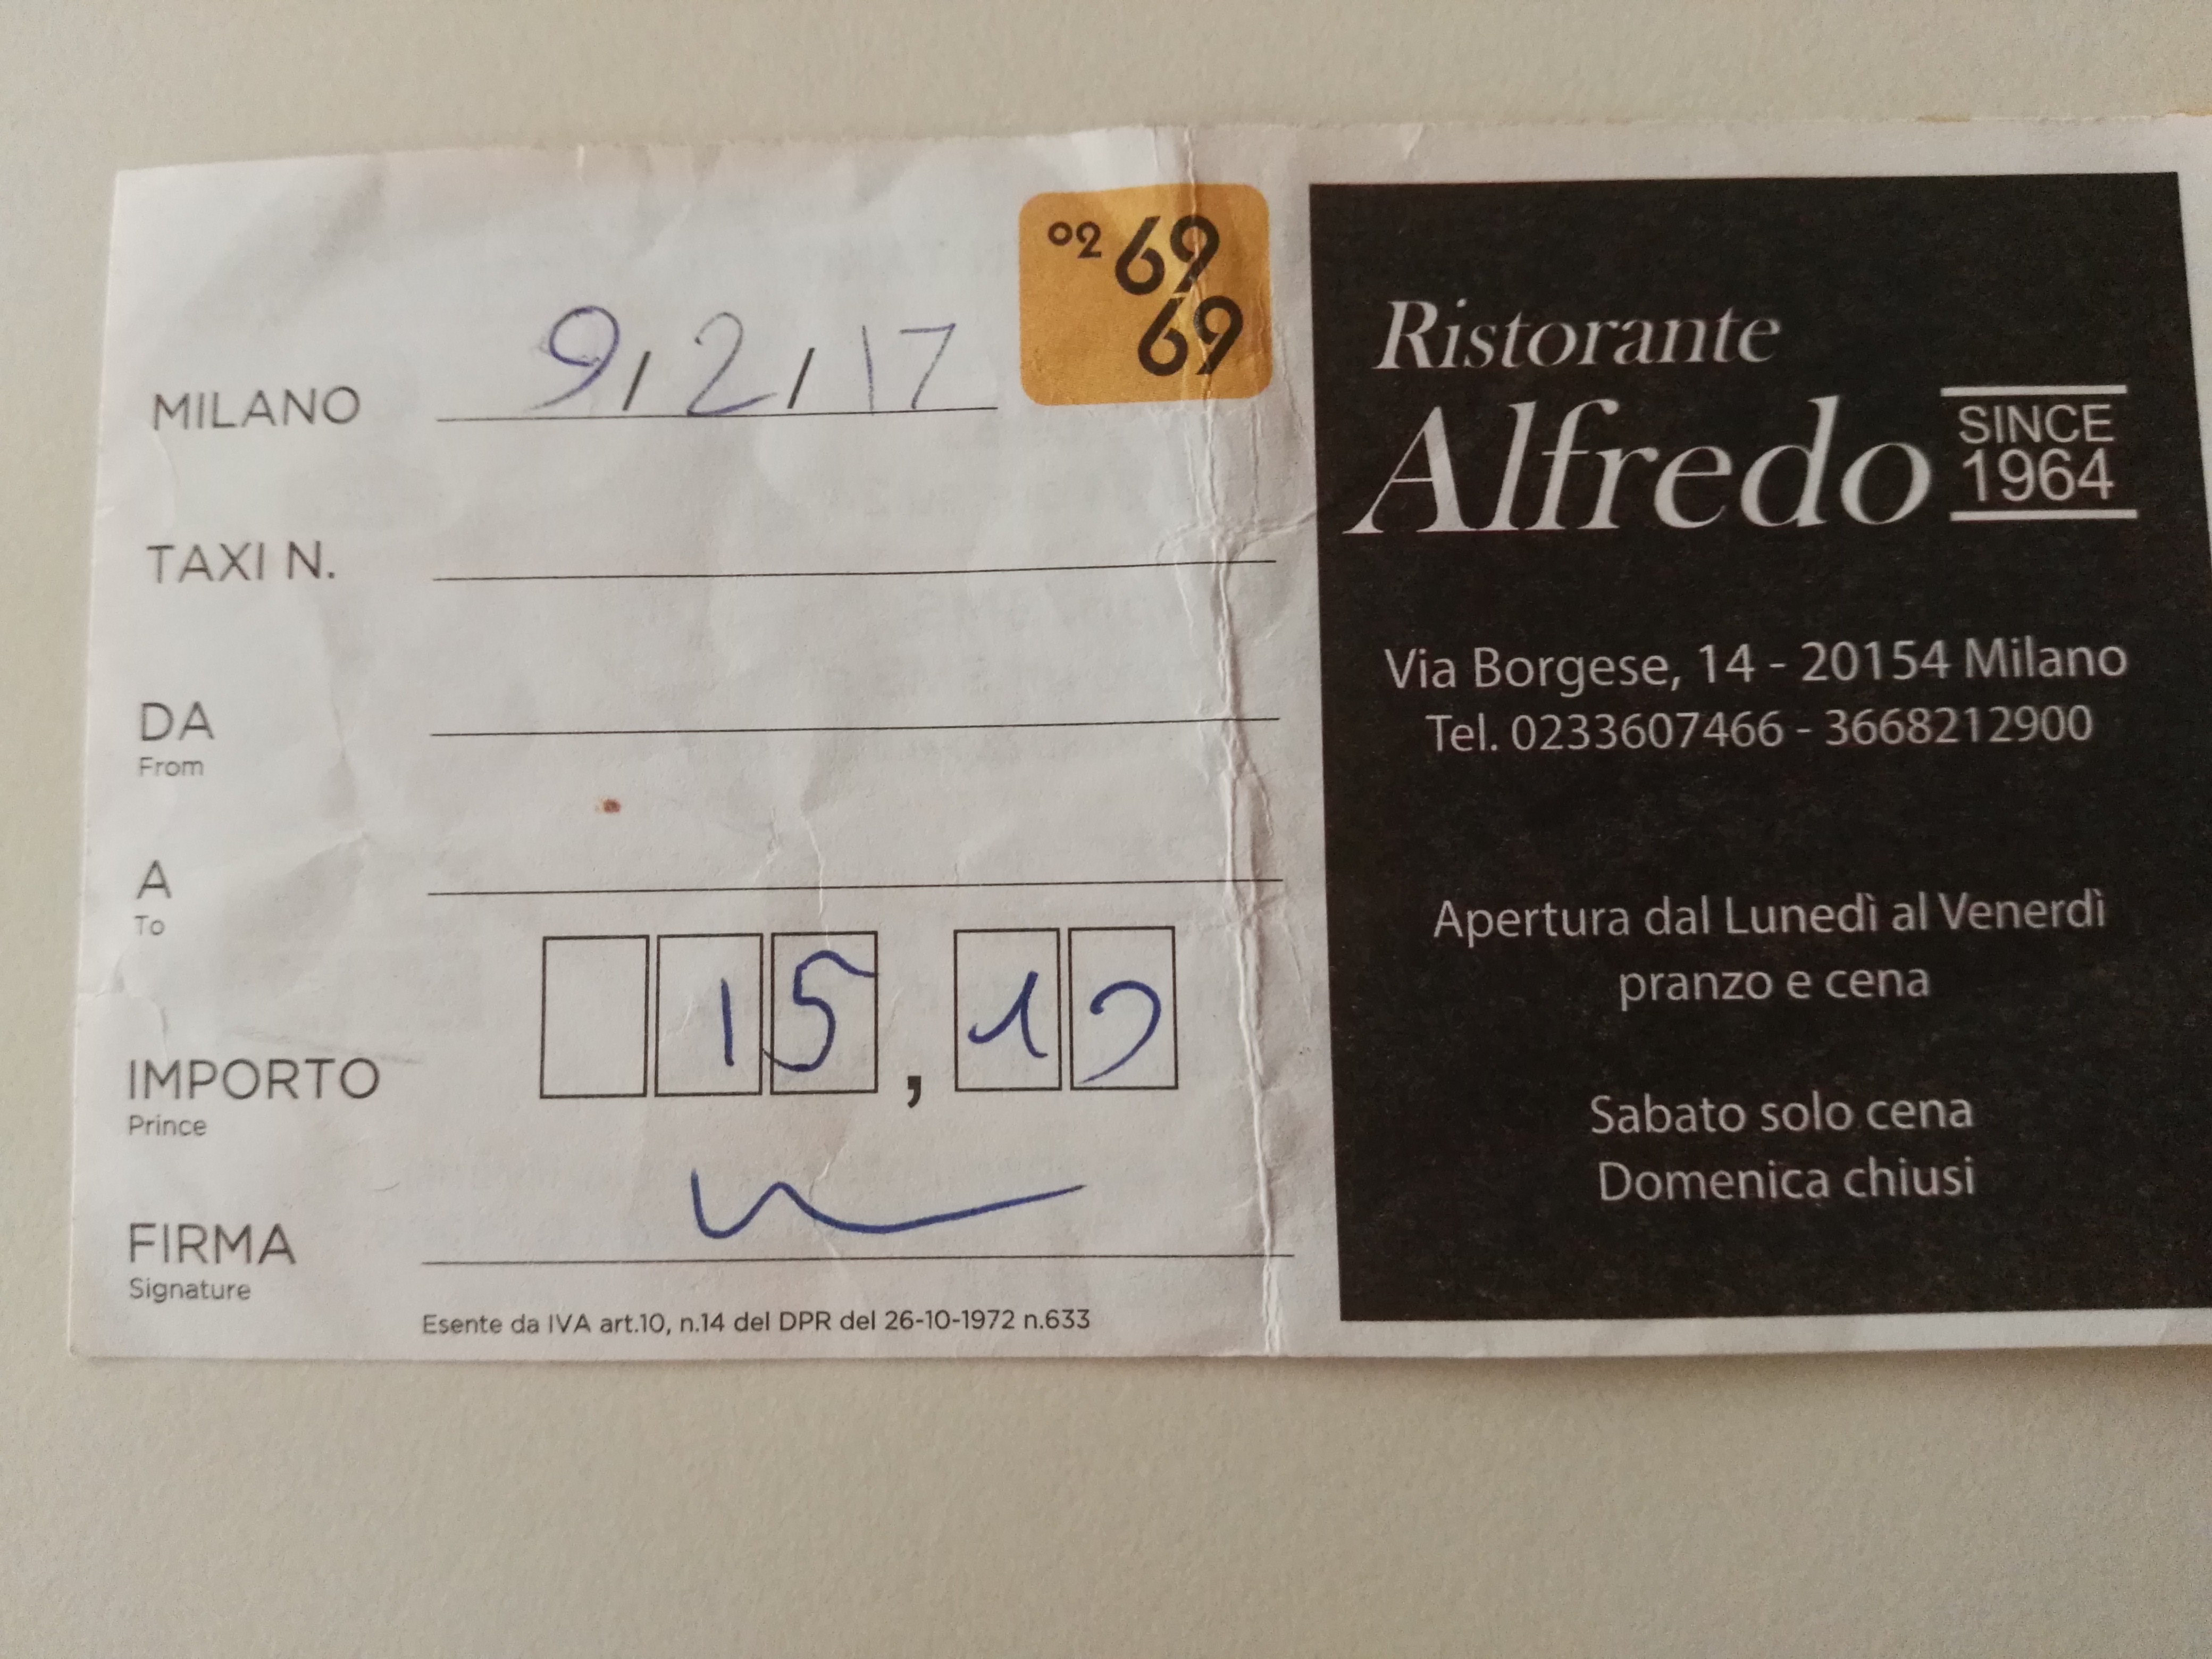 02 69
69
MILANO 9/2/17
TAXI N.
DA
From
A
To
IMPORTO 15,10
Prince
FIRMA
Signature
Esente da IVA art.10, n.14 del DPR del 26-10-1972 n.633
Ristorante
Alfredo SINCE
1964
Via Borgese, 14 - 20154 Milano
Tel. 0233607466 - 3668212900
Apertura dal Lunedì al Venerdì
pranzo e cena
Sabato solo cena
Domenica chiusi